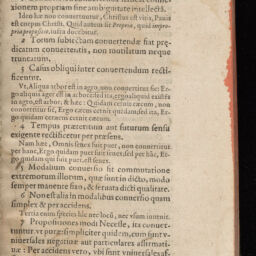 cionem propriam sine ambiguitate intellecta.
Ideo hæ non conuertuntur, Christus est vitis, Panis
est corpus Christi. Quod autem sit Propria, quid impro-
pria propositio, iustra docebitur.
2 Totum subiectum conuertendæ fiat præ-
dicatum conuertentis, non mutilatum neque
truncatum.
3 Casus obliqui inter conuertendum recti-
ficentur.
Vt, Aliqua arbor est in agro, non conuertitur sic: Er-
go aliquis ager est in arbore, sed ita, ergo aliquid existēs
in agro, est arbor, & hæc: Quidam cernit cæcum, non
conuertitur sic, Ergo cæcus cernit quēdam, sed ita, Er-
go quidam cernens cæcum, est quidam.
4 Tempus præteritum aut futurum sensu
exigente rectificetur per præsens.
Nam hæc, Omnis senex fuit puer, non conuertitur
per hanc, Ergo quidam puer fuit senex, sed per hāc, Er-
go quidam qui fuit puer, est senex.
5 Modalium conuersio fit commutatione
extremorum illorum, quæ sunt in dicto, modo
semper manente suo, & seruata dicti qualitate.
6 Non est alia in modalibus conuersio quam
simplex & per accidens.
Tertia enim species hic nec locū, nec vsum inuenit.
7 Propositiones modi Necesse, ita conuer-
tuntur vt puræ: simpliciter quidem, cum sunt v-
niuersales negatiuæ aut particulares affirmati-
uæ: Per accidens vero, vbi sunt vniuersales af-